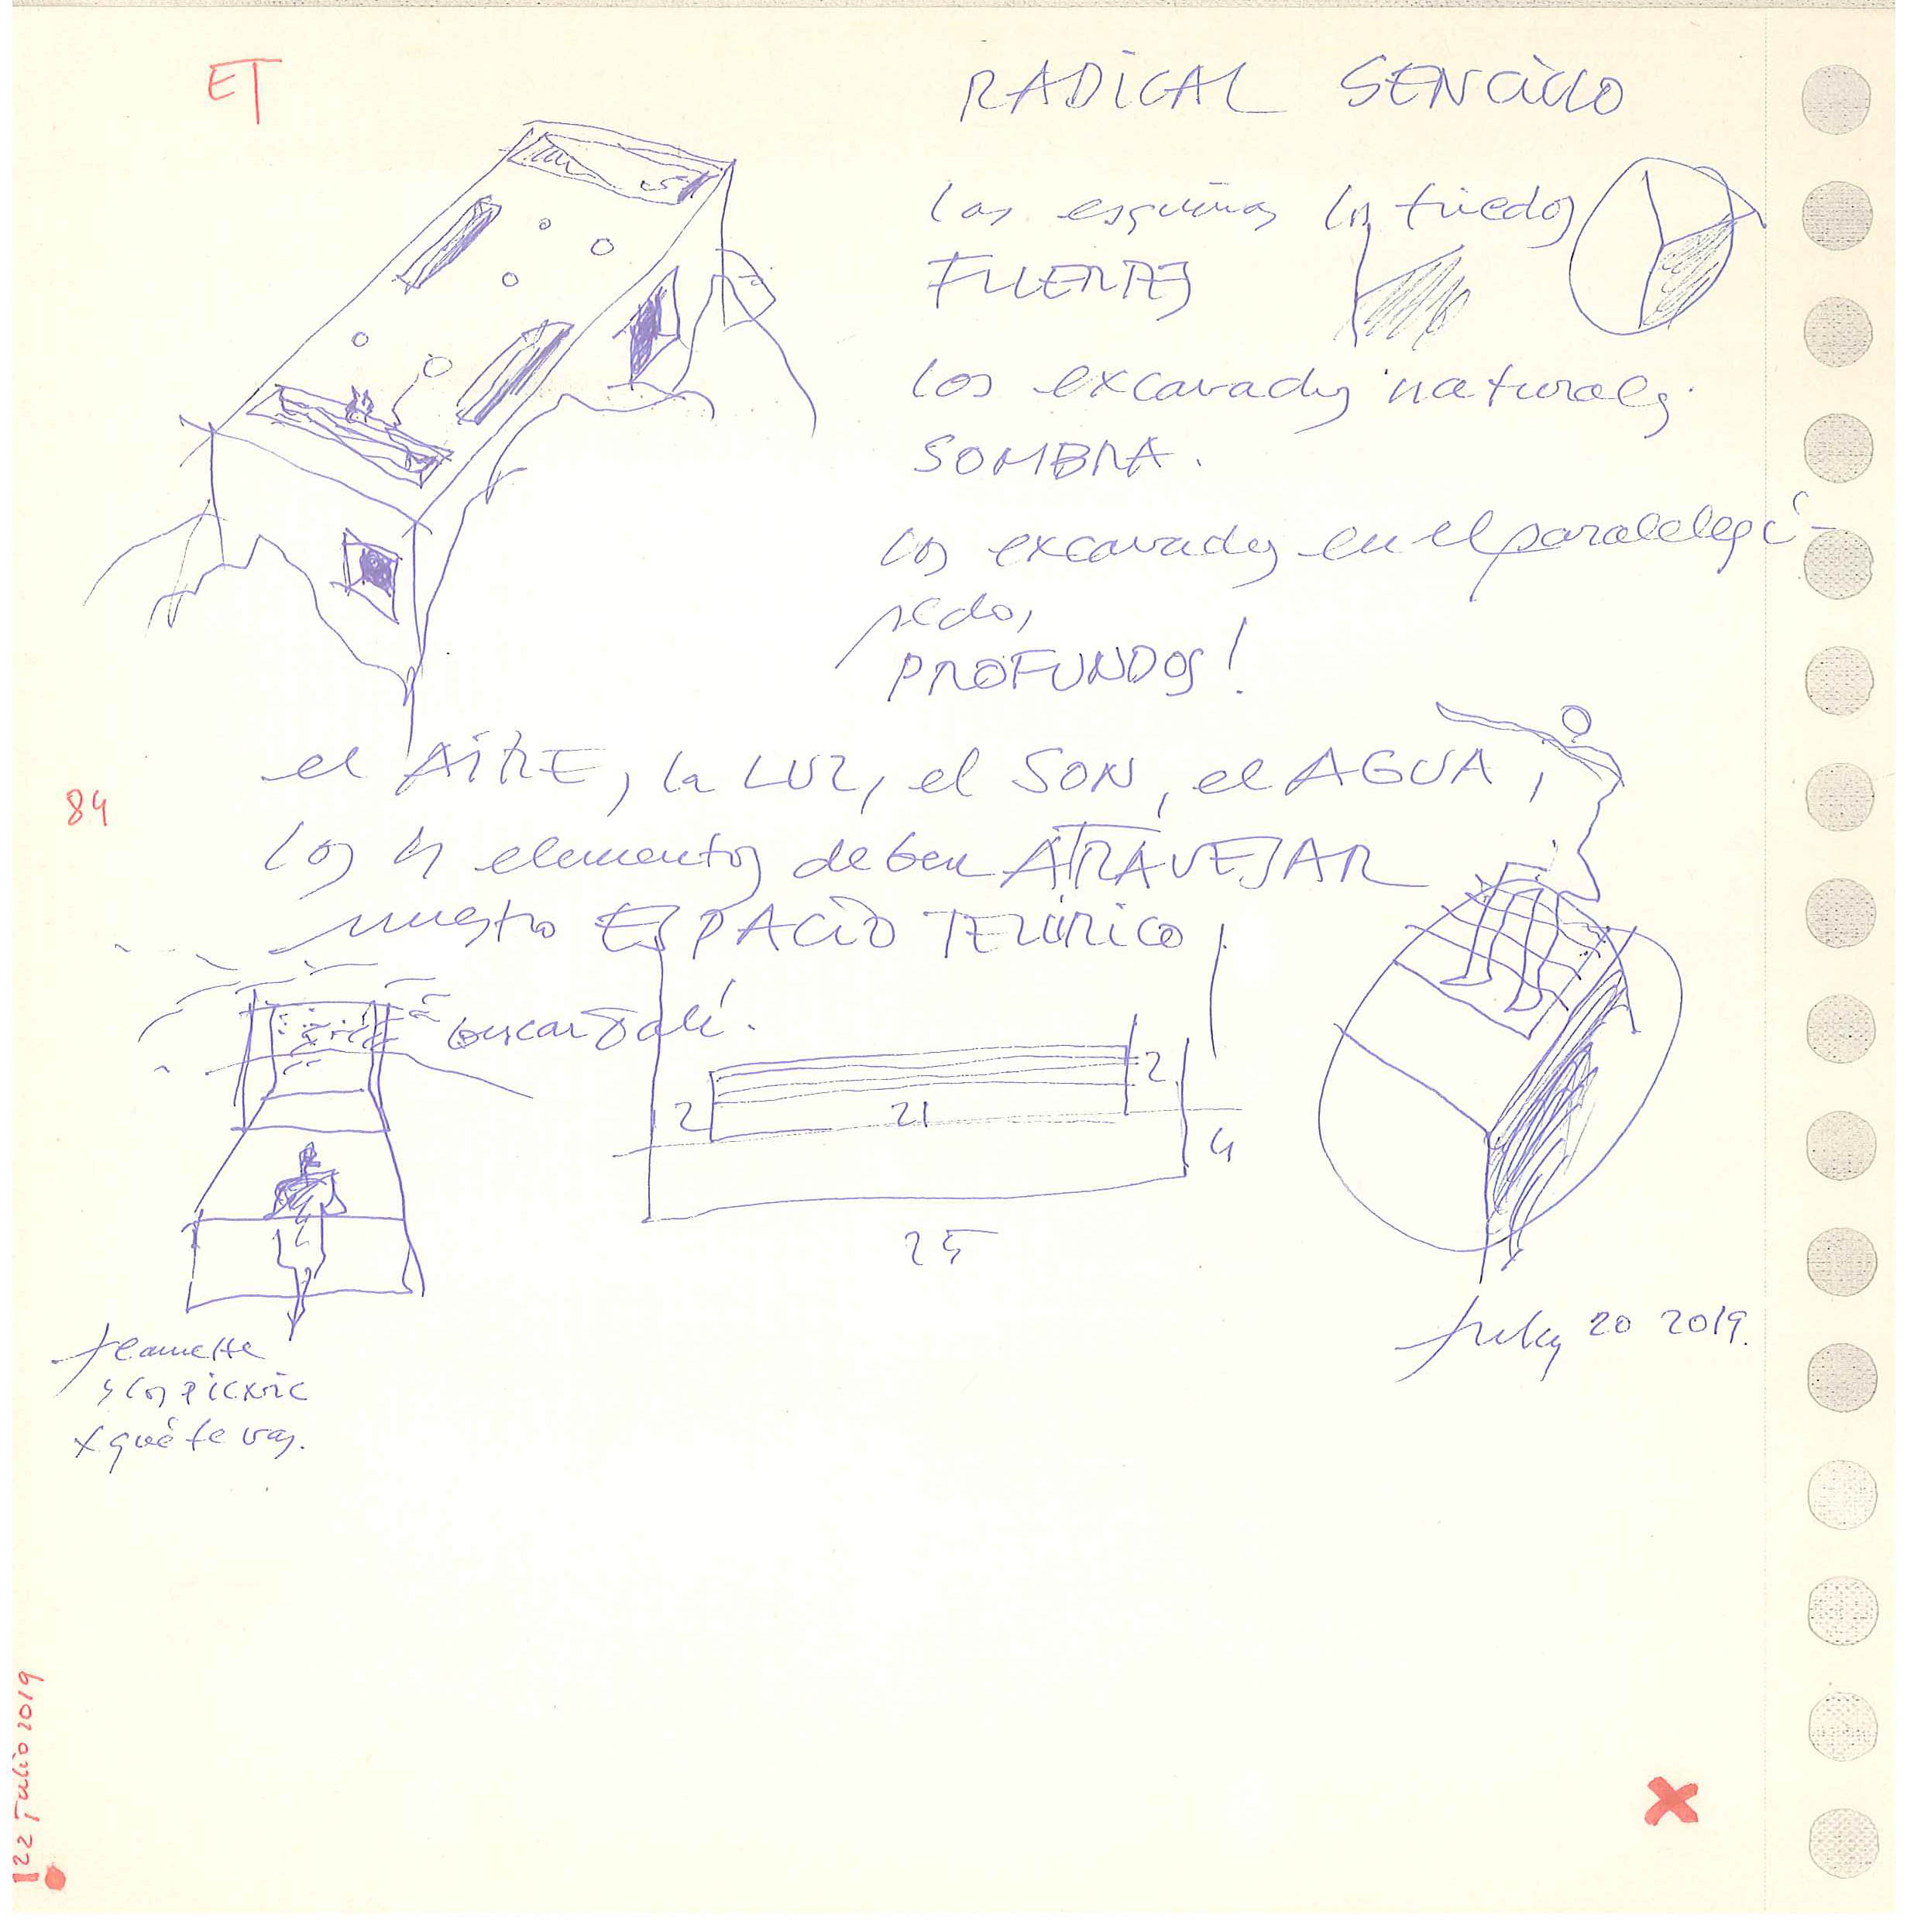 ET
RADICAL SENCILLO
las esquinas los triedros
FUERTES
los excavados naturales.
SOMBRA.
los excavados en el paralelepí-
pedo,
PROFUNDOS!
el AIRE, la LUZ, el SON, el AGUA,
84
los 4 elementos deben ATRAVESAR
nuestro ESPACIO TELÚRICO
buscar Dalí.
2 21 2
4
25
July 20 2019.
Jeanette
y los picnic
x qué te vas.
22 Julio 2019